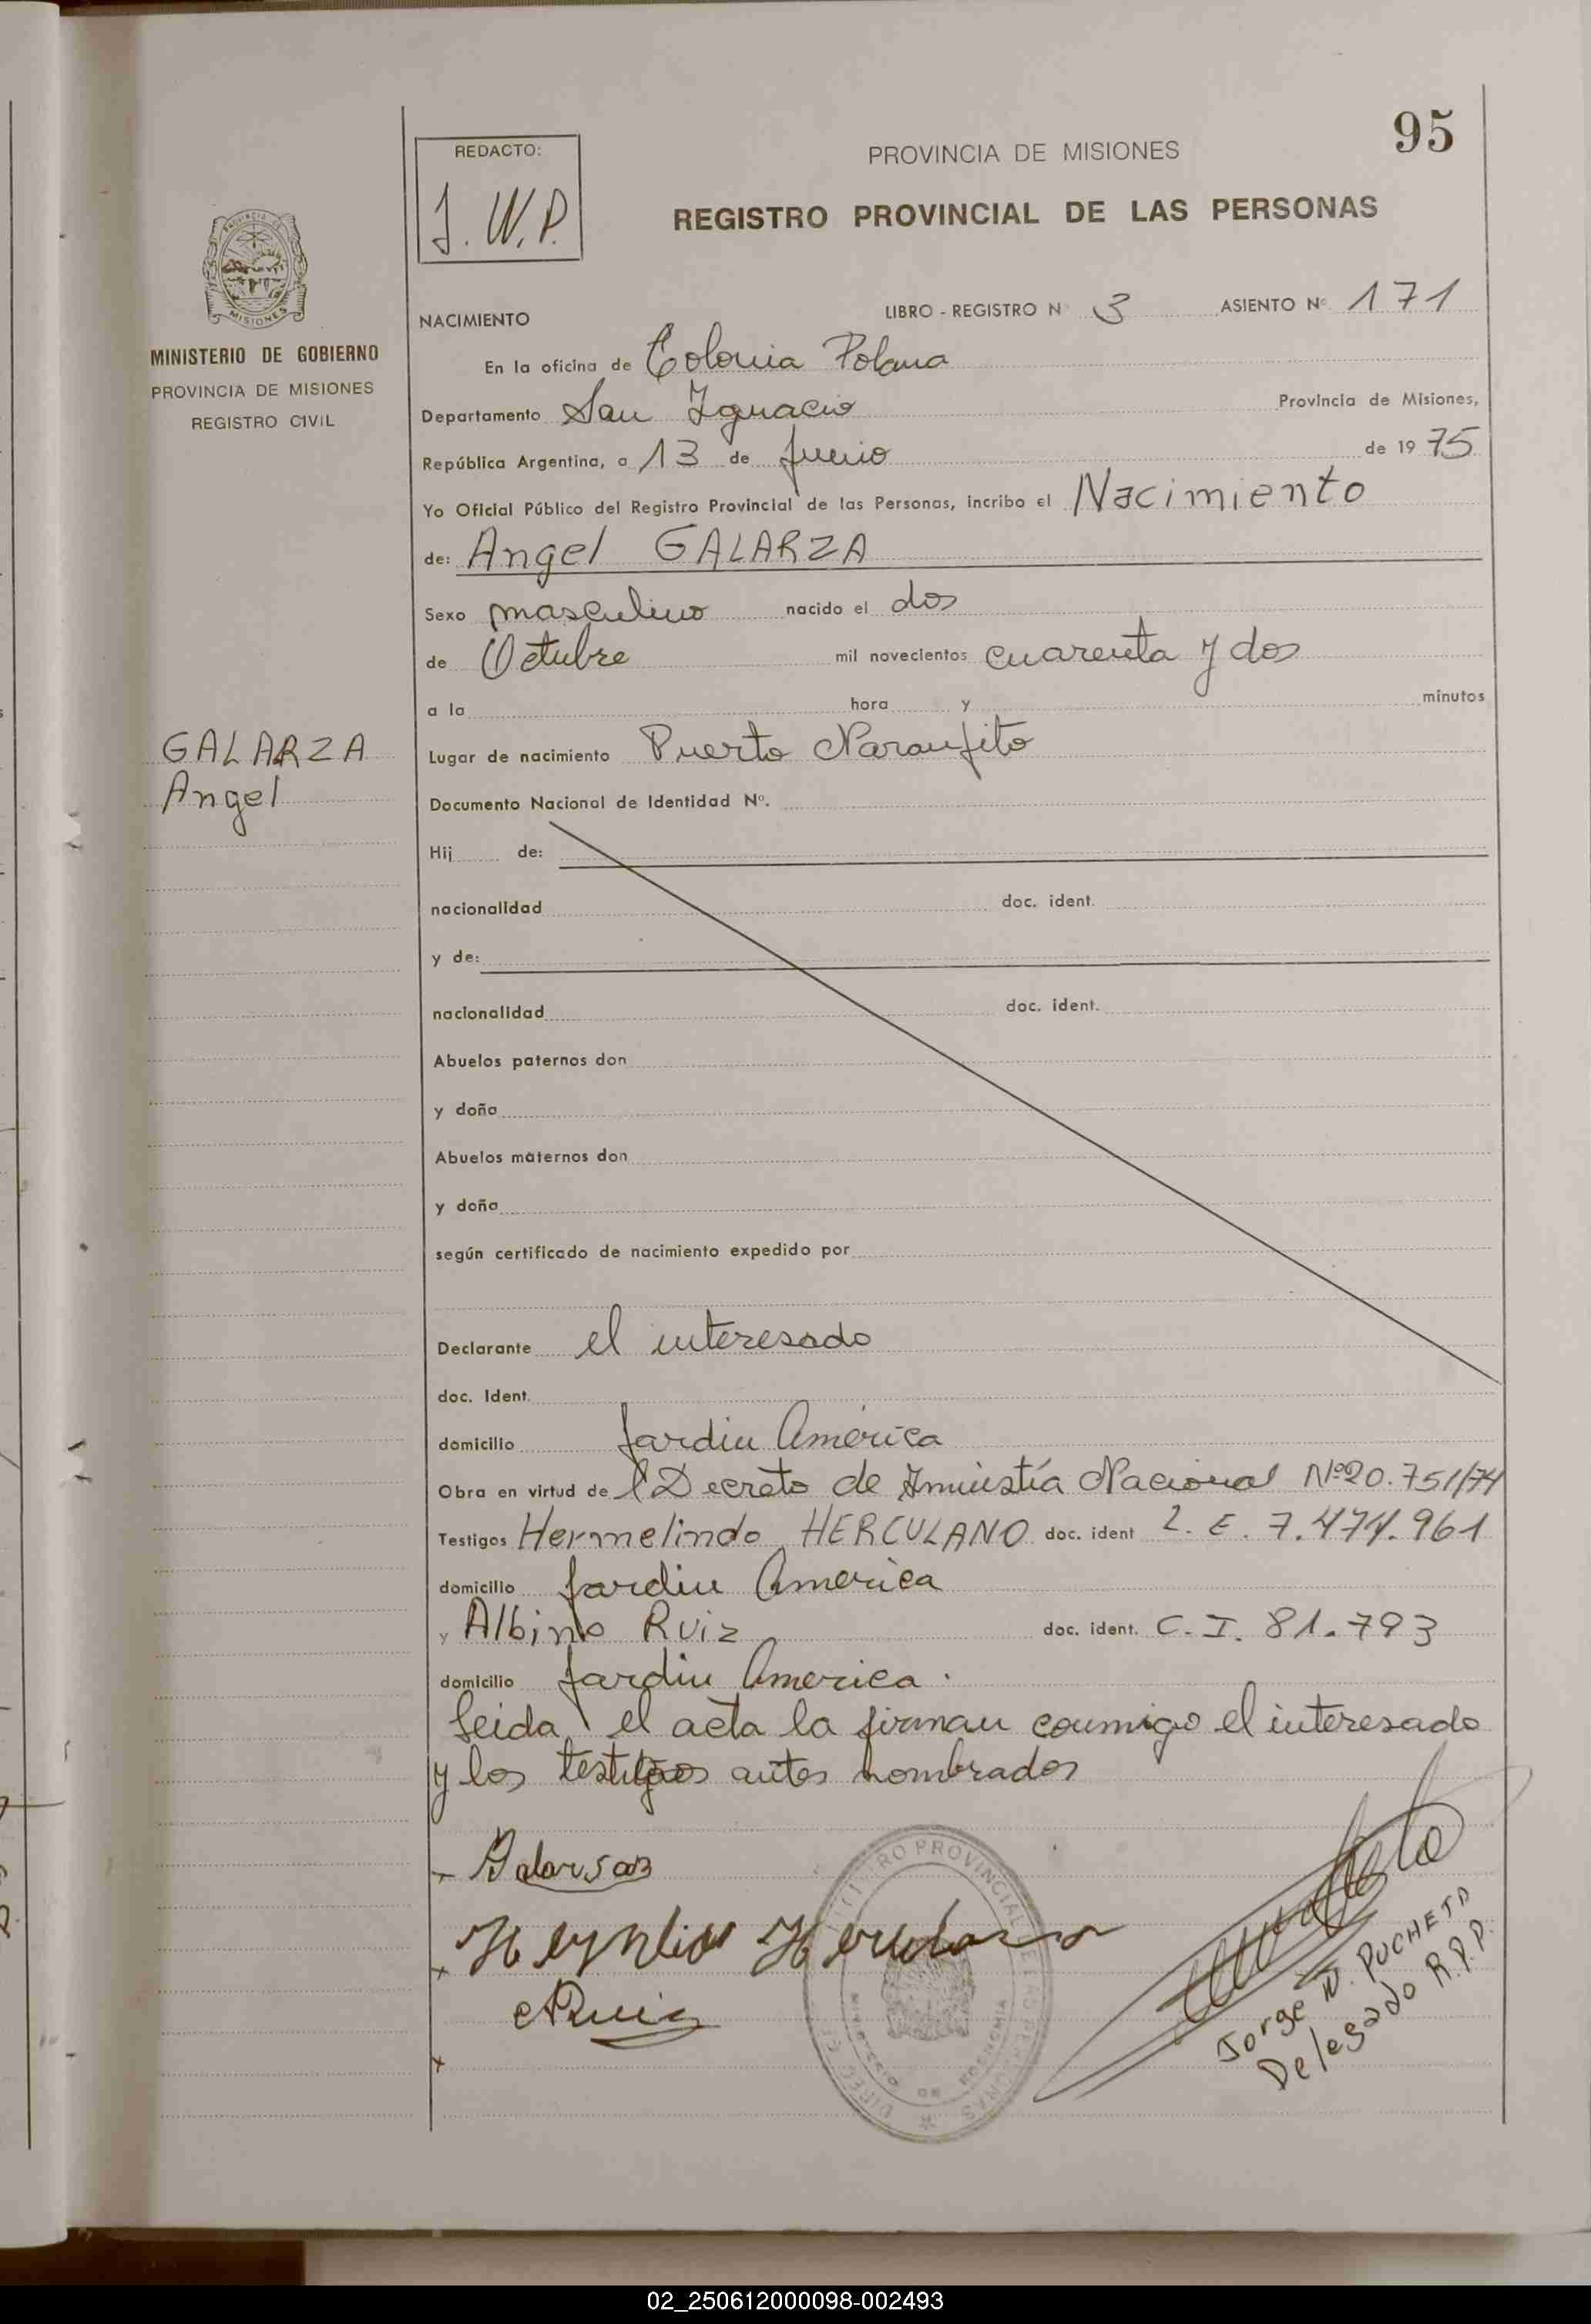 95
REDACTO:
J. W. P.
PROVINCIA DE MISIONES
REGISTRO PROVINCIAL DE LAS PERSONAS
MISIONES
MINISTERIO DE GOBIERNO
PROVINCIA DE MISIONES
REGISTRO CIVIL
NACIMIENTO LIBRO - REGISTRO N° 3 ASIENTO N° 171
En la oficina de Colonia Polana
Departamento San Ignacio Provincia de Misiones,
República Argentina, a 13 de Junio de 1975
Yo Oficial Público del Registro Provincial de las Personas, incribo el Nacimiento
de: Angel GALARZA
Sexo masculino nacido el dos
de Octubre mil novecientos cuarenta y dos
a la hora y minutos
GALARZA
Angel
Lugar de nacimiento Puerto Naranjito
Documento Nacional de Identidad Nº.
Hij de:
nacionalidad doc. ident.
y de:
nacionalidad doc. ident.
Abuelos paternos don
y doña
Abuelos maternos don
y doña
según certificado de nacimiento expedido por
Declarante el interesado
doc. Ident.
domicilio Jardin América
Obra en virtud de l Decreto de Amnistía Nacional Nº 20.751/74
Testigos Hermelindo HERCULANO doc. ident L. E. 7.474.961
domicilio Jardin America
y Albino Ruiz doc. ident. C. I. 81.793
domicilio Jardin America.
Leida el acta la firman conmigo el interesado
y los testigos antes nombrados
Galarsa
ARuiz
Jorge W. PUCHETA
Delegado R.P.P.
02_250612000098-002493